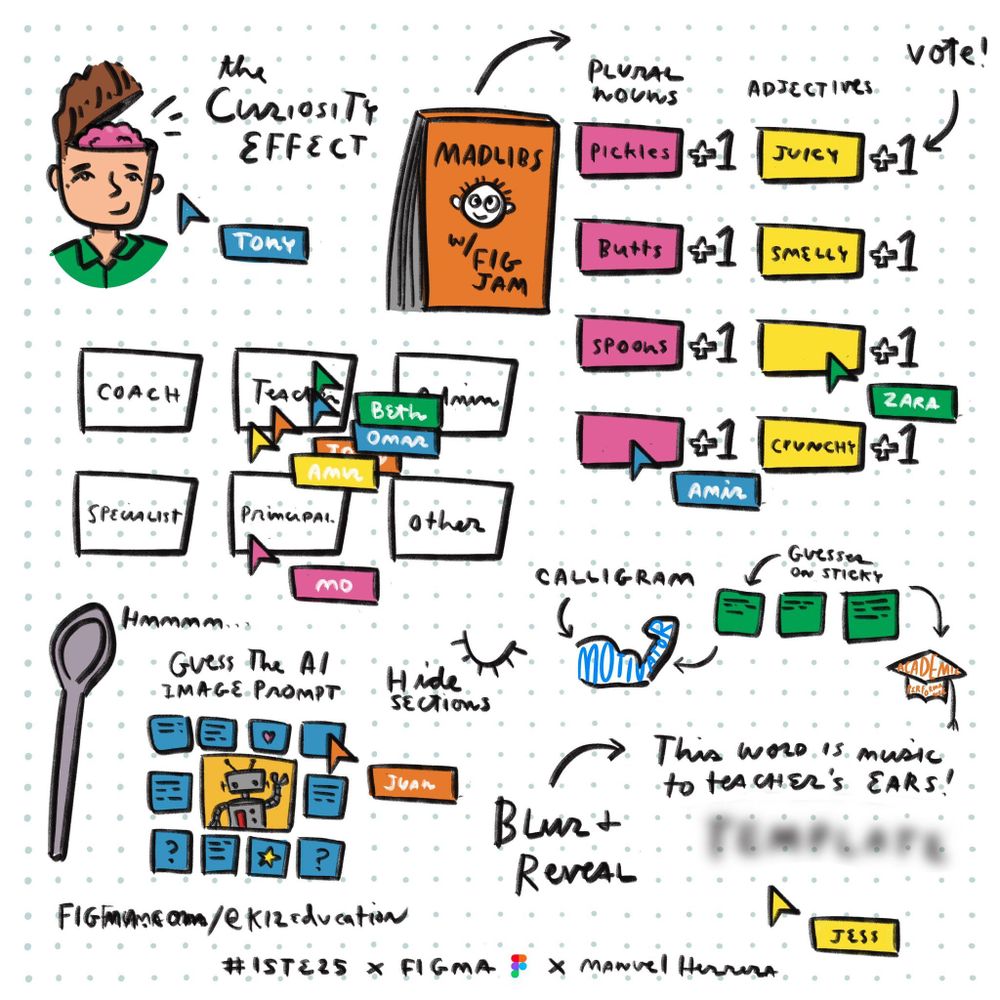 the
CURIOSITY
EFFECT
TONY
MADLIBS
w/ FIG
JAM
PLURAL
NOUNS
ADJECTIVES
vote!
Pickles +1
JUICY +1
Butts +1
SMELLY +1
SPOONS +1
+1
ZARA
+1
CRUNCHY +1
AMIR
COACH
Teacher
Admin
Beth
OMAR
AMIR
SPECIALIST
PRINCIPAL
other
MO
Hmmmm...
Guess The AI
IMAGE PROMPT
? ?
JUAN
Hide
SECTIONS
CALLIGRAM
MOTIVATOR
GUESSES
ON STICKY
ACADEMIC
Blur +
Reveal
This word is music
to teacher's EARS!
TEMPLATE
JESS
FIGMA.com/@K12education
#ISTE25 x FIGMA x MANUEL HERRERA